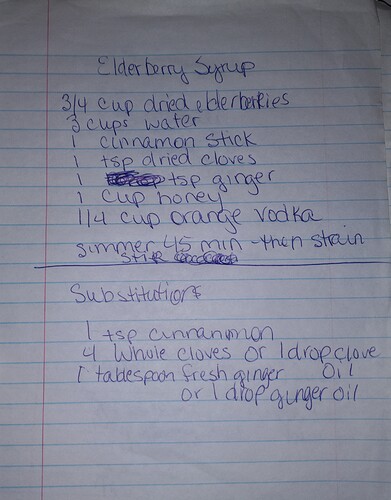 Elderberry Syrup
3/4 cup dried elderberries
3 cups water
1 cinnamon stick
1 tsp dried cloves
1 tsp ginger
1 cup honey
1/4 cup orange vodka
simmer 45 min - then strain
Substitutions
1 tsp cinnanmon
4 Whole cloves or 1 drop clove
1 tablespoon fresh ginger Oil
or 1 drop ginger oil